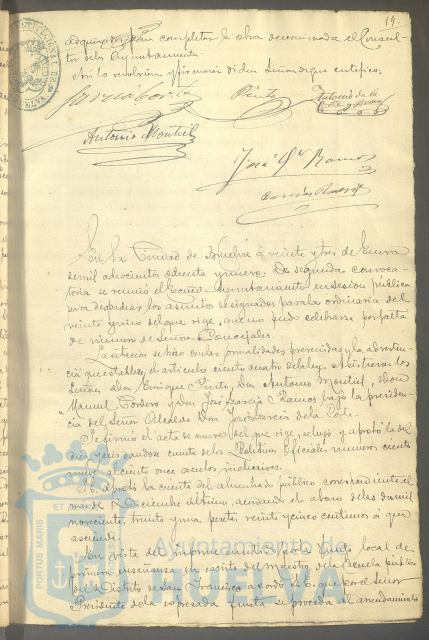 19.
adquieran para completar la obra denominada el Consul-
tor de los Ayuntamientos
Así lo resolvieron y firmaron dichos Señores de que certifico;
García Cortés
Pinto
Antonio de la
Antonio Montiel
José Gª Ramos
En la Ciudad de Huelva á veinte y tres de Enero
de mil ochocientos ochenta y nueve: De segunda convoca-
toria se reunió el Excmo Ayuntamiento en sesion pública
para despachar los asuntos designados para la ordinaria del
veinte y uno del que rige, que no pudo celebrarse por falta
de número de Señores Concejales.
La citacion se hizo con las formalidades prevenidas y la adverten-
cia que establece el artículo ciento cuatro de la ley, asistieron los
Señores Don Enrique Pinto, Don Antonio Montiel, Don
Manuel Cordero y Don José García Ramos bajo la presiden-
cia del Señor Alcalde Don José García de la
Se firmó el acta de nueve del que rige, se leyó y aprobó la del
diez y seis dandose cuenta de los Boletines Oficiales números ciento
nueve al ciento once ambos inclusives.
Se aprobó la cuenta del alumbrado público correspondiente al
mes de Diciembre último, acordando el abono de las dos mil
novecientas treinta y una pesetas veinte y cinco centimos á que
asciende.
En vista del informe emitido por la Junta local de
primera enseñanza en escrito del maestro de la Escuela pública
del Distrito de San Francisco acordó S. E. que por el Señor
Presidente de la expresada Junta se proceda al arrendamiento
Ayuntamiento de
HUELVA
PORTUS MARIS
ET